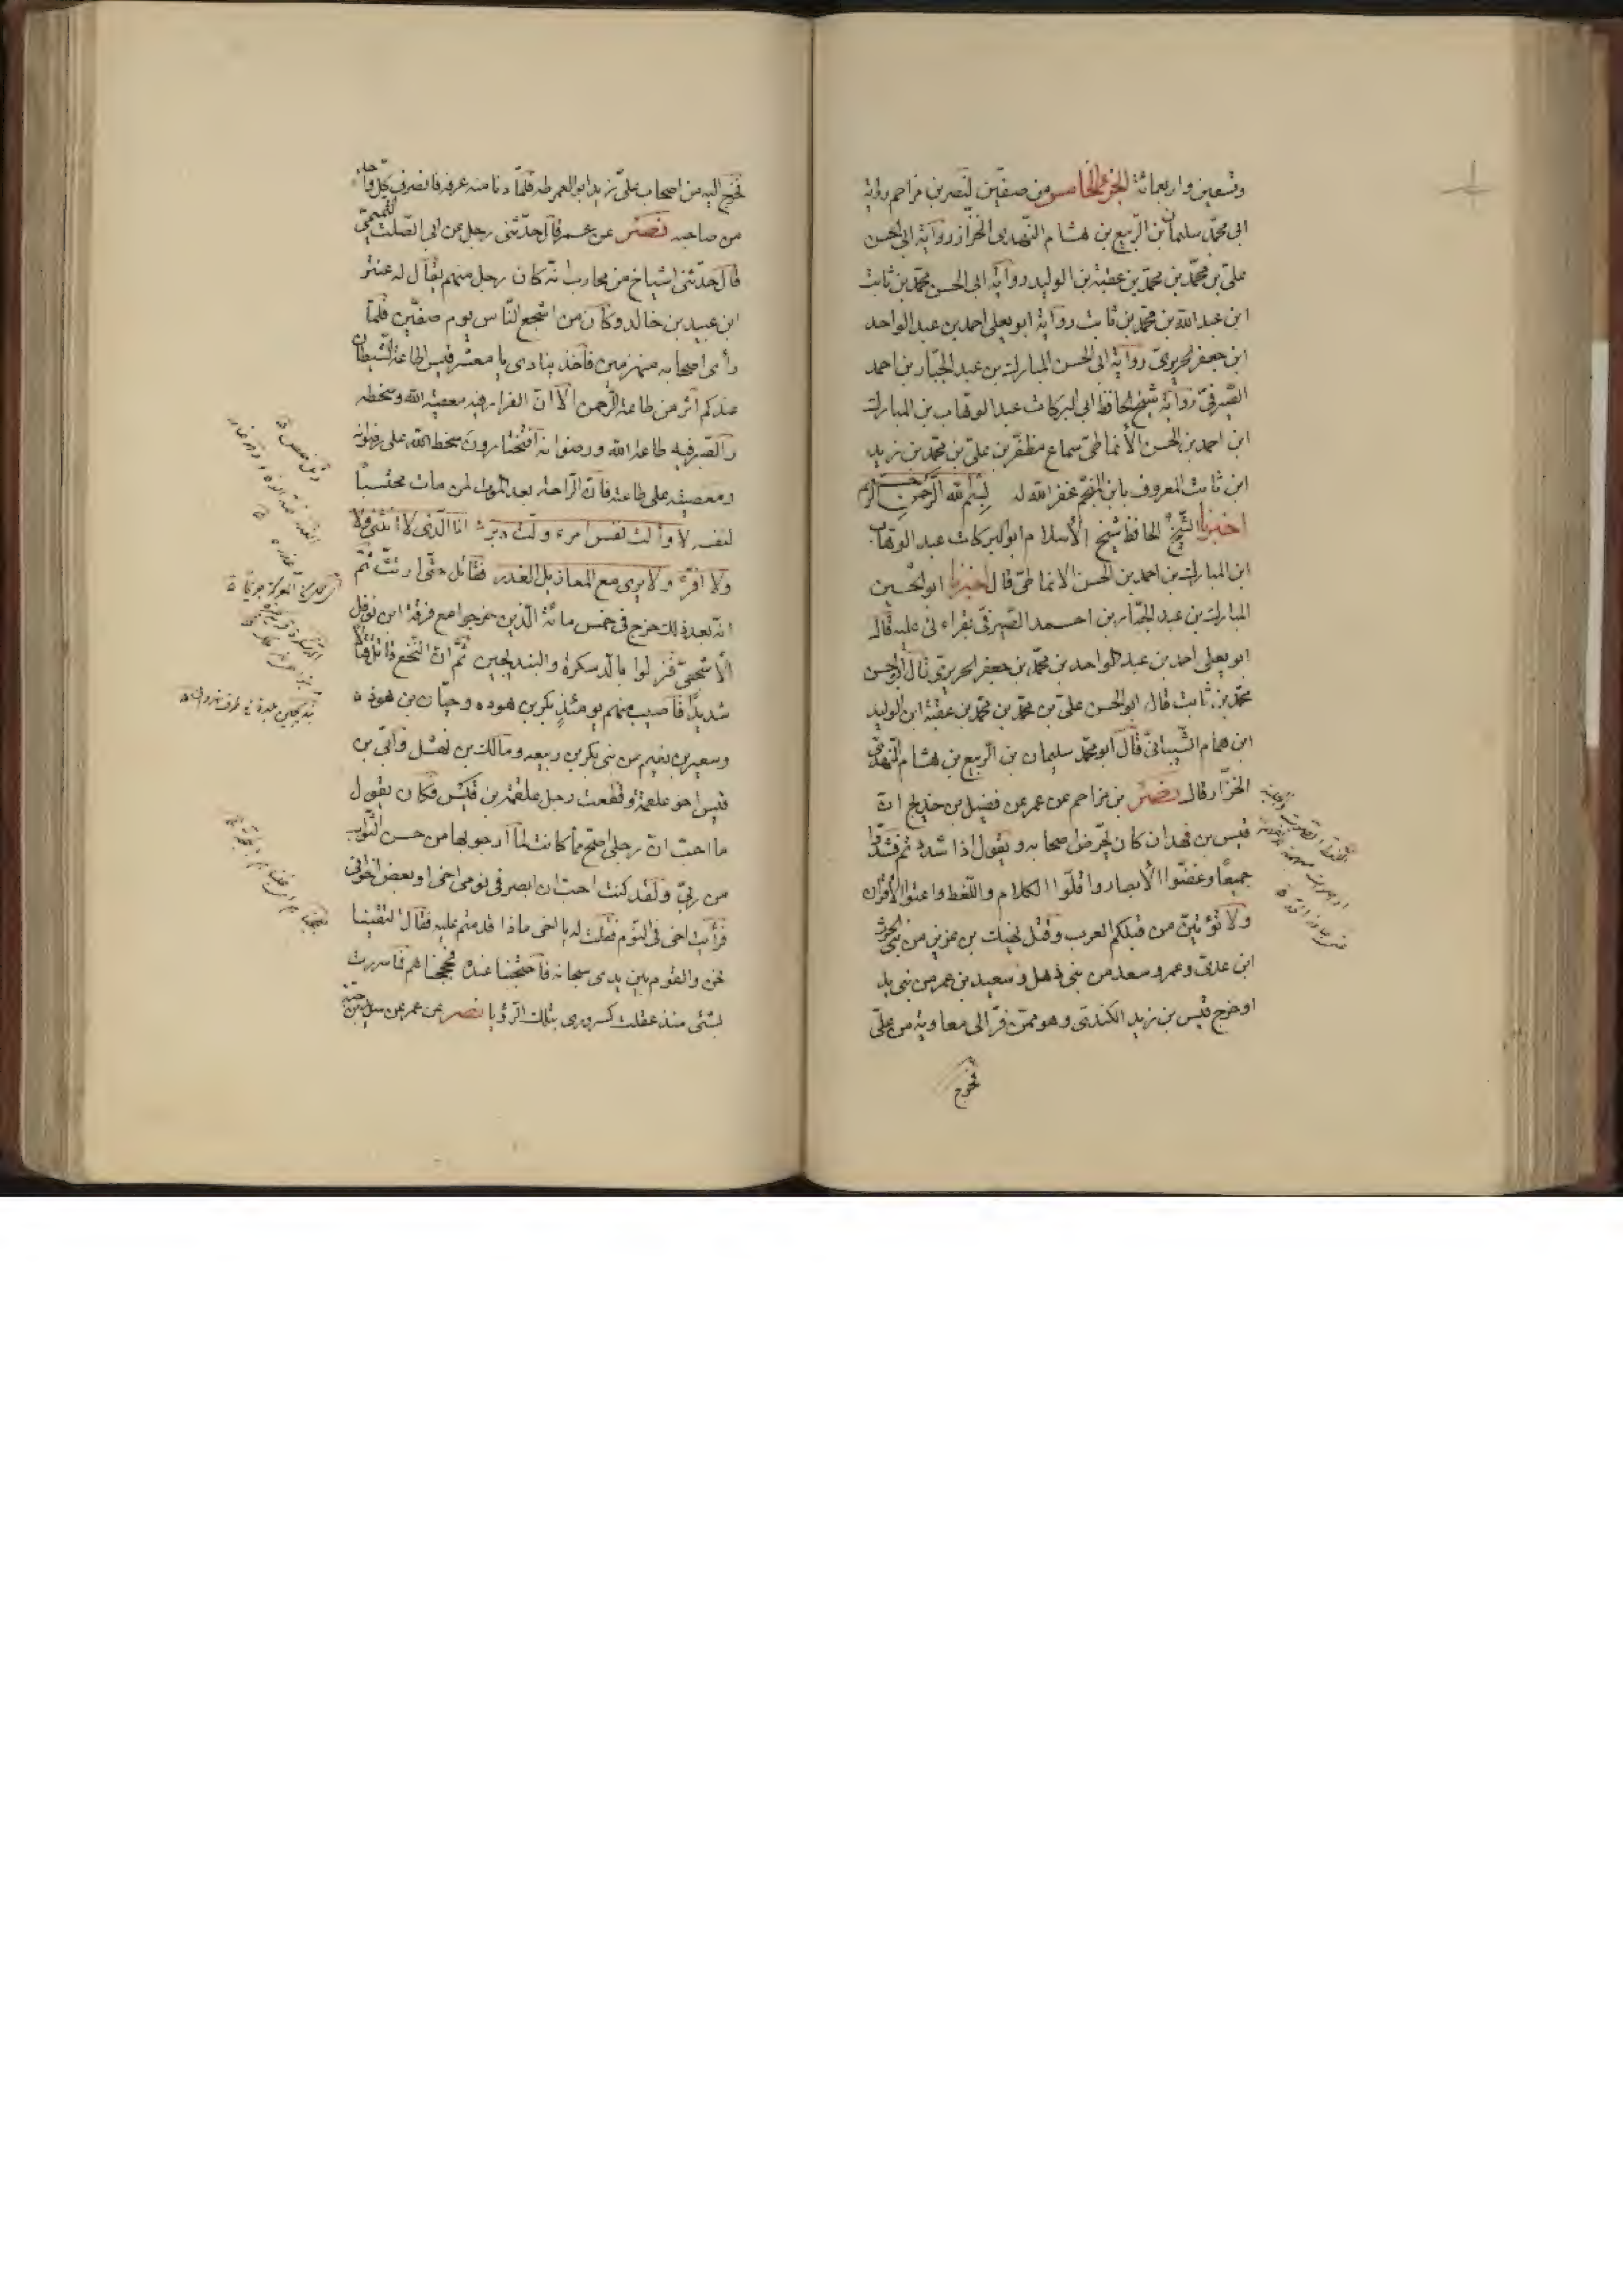 وتسعين واربعمائة الجزء الخامس من صفين لنصر بن مزاحم رواية
ابي محمد سليمان بن الربيع بن هشام النهدي الخزاز رواية ابي الحسن
علي بن محمد بن محمد بن عقبة بن الوليد رواية ابي الحسن محمد بن ثابت
ابن عبد الله بن محمد بن ثابت رواية ابو يعلى احمد بن عبد الواحد
ابن جعفر الحريري رواية ابي الحسن المبارك بن عبد الجبار بن احمد
الصيرفي رواية شيخ الحافظ ابي البركات عبد الوهاب بن المبارك
ابن احمد بن الحسن الأنماطي سماع مظفر بن علي بن محمد بن زيد
ابن ثابت المعروف بابن المنجم غفر الله له بسم الله الرحمن الرحيم
اخبرنا الشيخ الحافظ شيخ الأسلام ابو البركات عبد الوهاب
ابن المبارك بن احمد بن الحسن الانماطي قال اخبرنا ابو الحسين
المبارك بن عبد الجبار بن احمد الصيرفي بقراءتي عليه قال
ابو يعلى احمد بن عبد الواحد بن محمد بن جعفر الحريري قال ابو الحسن
محمد بن ثابت قال ابو الحسن علي بن محمد بن محمد بن عقبة ابن الوليد
ابن همام الشيباني قال ابو محمد سليمان بن الربيع بن هشام النهدي
الخزاز قال نصر بن مزاحم عن عمر عن فضيل بن خديج ان
قيس بن فهدان كان يحرض اصحابه ويقول اذا شددتم فشدوا
جميعا وغضوا الأبصار واقلوا الكلام واللغط واعتوا الأقران
ولا تؤتين من قبلكم العرب وقتل نهيك بن عزيز من بني الحرث
ابن عدي وعمرو سعد من بني ذهل وسعيد بن عمر من بني بد
او خرج قيس بن زيد الكندي وهو ممن فر الى معاوية من علي
فخرج
فخرج اليه من اصحاب علي زيد ابو العمرطه فلما دنا منه عرفه فانصرف كل واحد
من صاحبه نصر عن عمر قال حدثني رجل عن ابي الصلت التيمي
قال حدثني اشياخ من محارب انه كان رجل منهم يقال له عنتر
ابن عبيد بن خالد وكان من اشجع الناس يوم صفين فلما
رأى اصحابه منهزمين فأخذ ينادي يا معشر قيس اطاعة الشيطان
عندكم آثر من طاعة الرحمن الا ان الفرار فيه معصية الله وسخطه
والصبر فيه طاعة الله ورضوانه أفتختارون سخط الله على رضوانه
ومعصيته على طاعته فان الراحة بعد الموت لمن مات محتسبا
لنفسه لا وألت نفس امرء ولت دبر انا الذي لا انثني ولا
ولا افر ولا يرى مع المعازيل الغدر فقاتل حتى ارتث ثم
انه بعد ذلك خرج في خمس مائة الذين خرجوا مع فروة ابن نوفل
الأشجعي فنزلوا بالدسكرة والبندنجين ثم ان النخع قاتل قتالا
شديدا فأصيب منهم يومئذ بكر بن هوذه وحيان بن هوذه
وسعير بن نعيم من بني بكر بن ربيعه ومالك بن نهشل وابي بن
قيس اخو علقمة وقطعت رجل علقمة بن قيس فكان يقول
ما احب ان رجلي اصح مما كانت لما ارجو بها من حسن الثواب
من ربي ولقد كنت احب ان ابصر في نومي اخي او بعض اخواني
فرأيت اخي في النوم فقلت له يا اخي ماذا قدمتم عليه فقال التقينا
نحن والقوم بين يدي سبحانه فأحتججنا عنده فحججناهم فما سررت
بشئ منذ عقلت كسروري بتلك الرؤيا نصر عن عمر عن سويد بن حبه